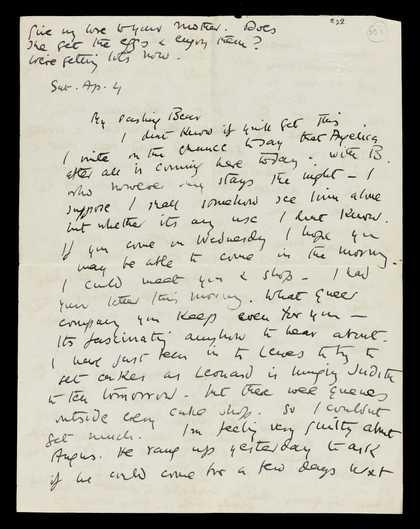 Give my love to your mother. Does
she get the eggs & enjoy them?
We're getting lots now.
222
Sat. Ap. 4
My darling Bear
I dont know if you'll get this.
I write on the chance to say that Angelica
after all is coming here today. with B.
who however only stays the night – I
suppose I shall somehow see him alone
but whether its any use I dont know.
If you come on Wednesday I hope you
may be able to come in the morning.
I could meet you & shop – I had
your letter this morning. What queer
company you keep even for you –
Its fascinating anyhow to hear about.
I have just been in to Lewes to try to
get cakes as Leonard is bringing Judith
to tea tomorrow. but there were queues
outside every cake shop. So I couldnt
get much. I'm feeling very guilty about
Angus. He rang up yesterday to ask
if we could come for a few days next